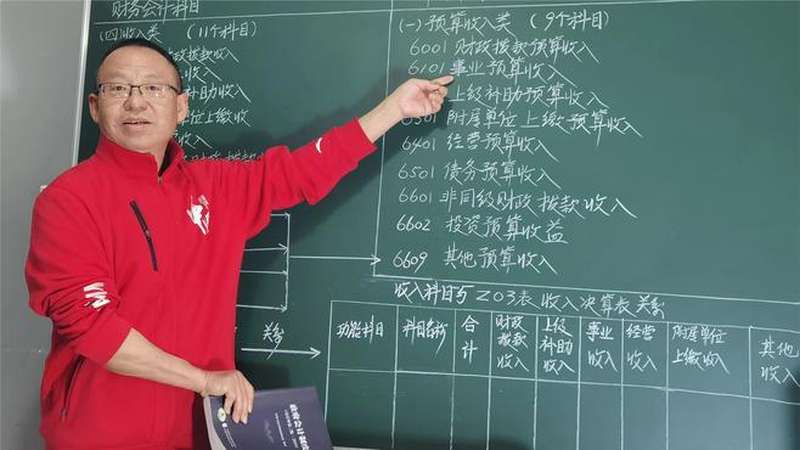 财务会计科目
(四)收入类 (11个科目)
政拨款收入
收入
补助收入
单位上缴收
财政拨款
(一)预算收入类 (9个科目)
6001 财政拨款预算收入
6101 事业预算收入
上级补助预算收入
6301 附属单位上缴预算收入
6401 经营预算收入
6501 债务预算收入
6601 非同级财政拨款收入
6602 投资预算收益
6609 其他预算收入
收入科目与Z03表收入决算表关系
关系
功能科目 科目名称 合计 财政拨款收入 上级补助收入 事业收入 经营收入 附属单位上缴收 其他收入